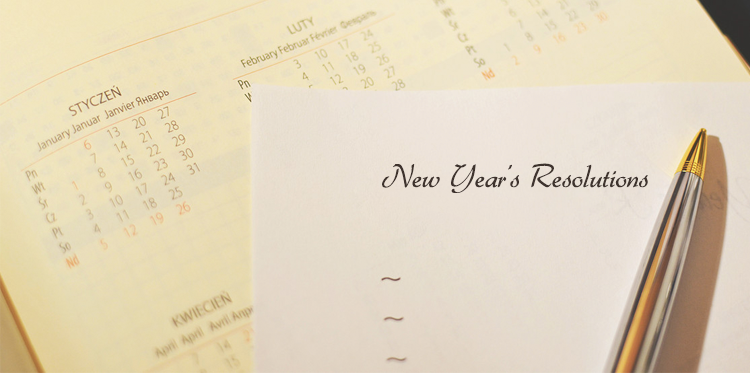 LUTY
February Februar Février Февраль
Pn 3 10 17 24
4 11 18 25
5 12 19 26
Pt 7 14 21 28
So 1 8 15 22 29
Nd 2 9 16 23 30
STYCZEŃ
January Januar Janvier Январь
Pn 6 13 20 27
Wt 7 14 21 28
Śr 1 8 15 22 29
Cz 2 9 16 23 30
Pt 3 10 17 24 31
So 4 11 18 25
Nd 5 12 19 26
KWIECIEŃ
April April Avril
7 14
New Year's Resolutions
~
~
~